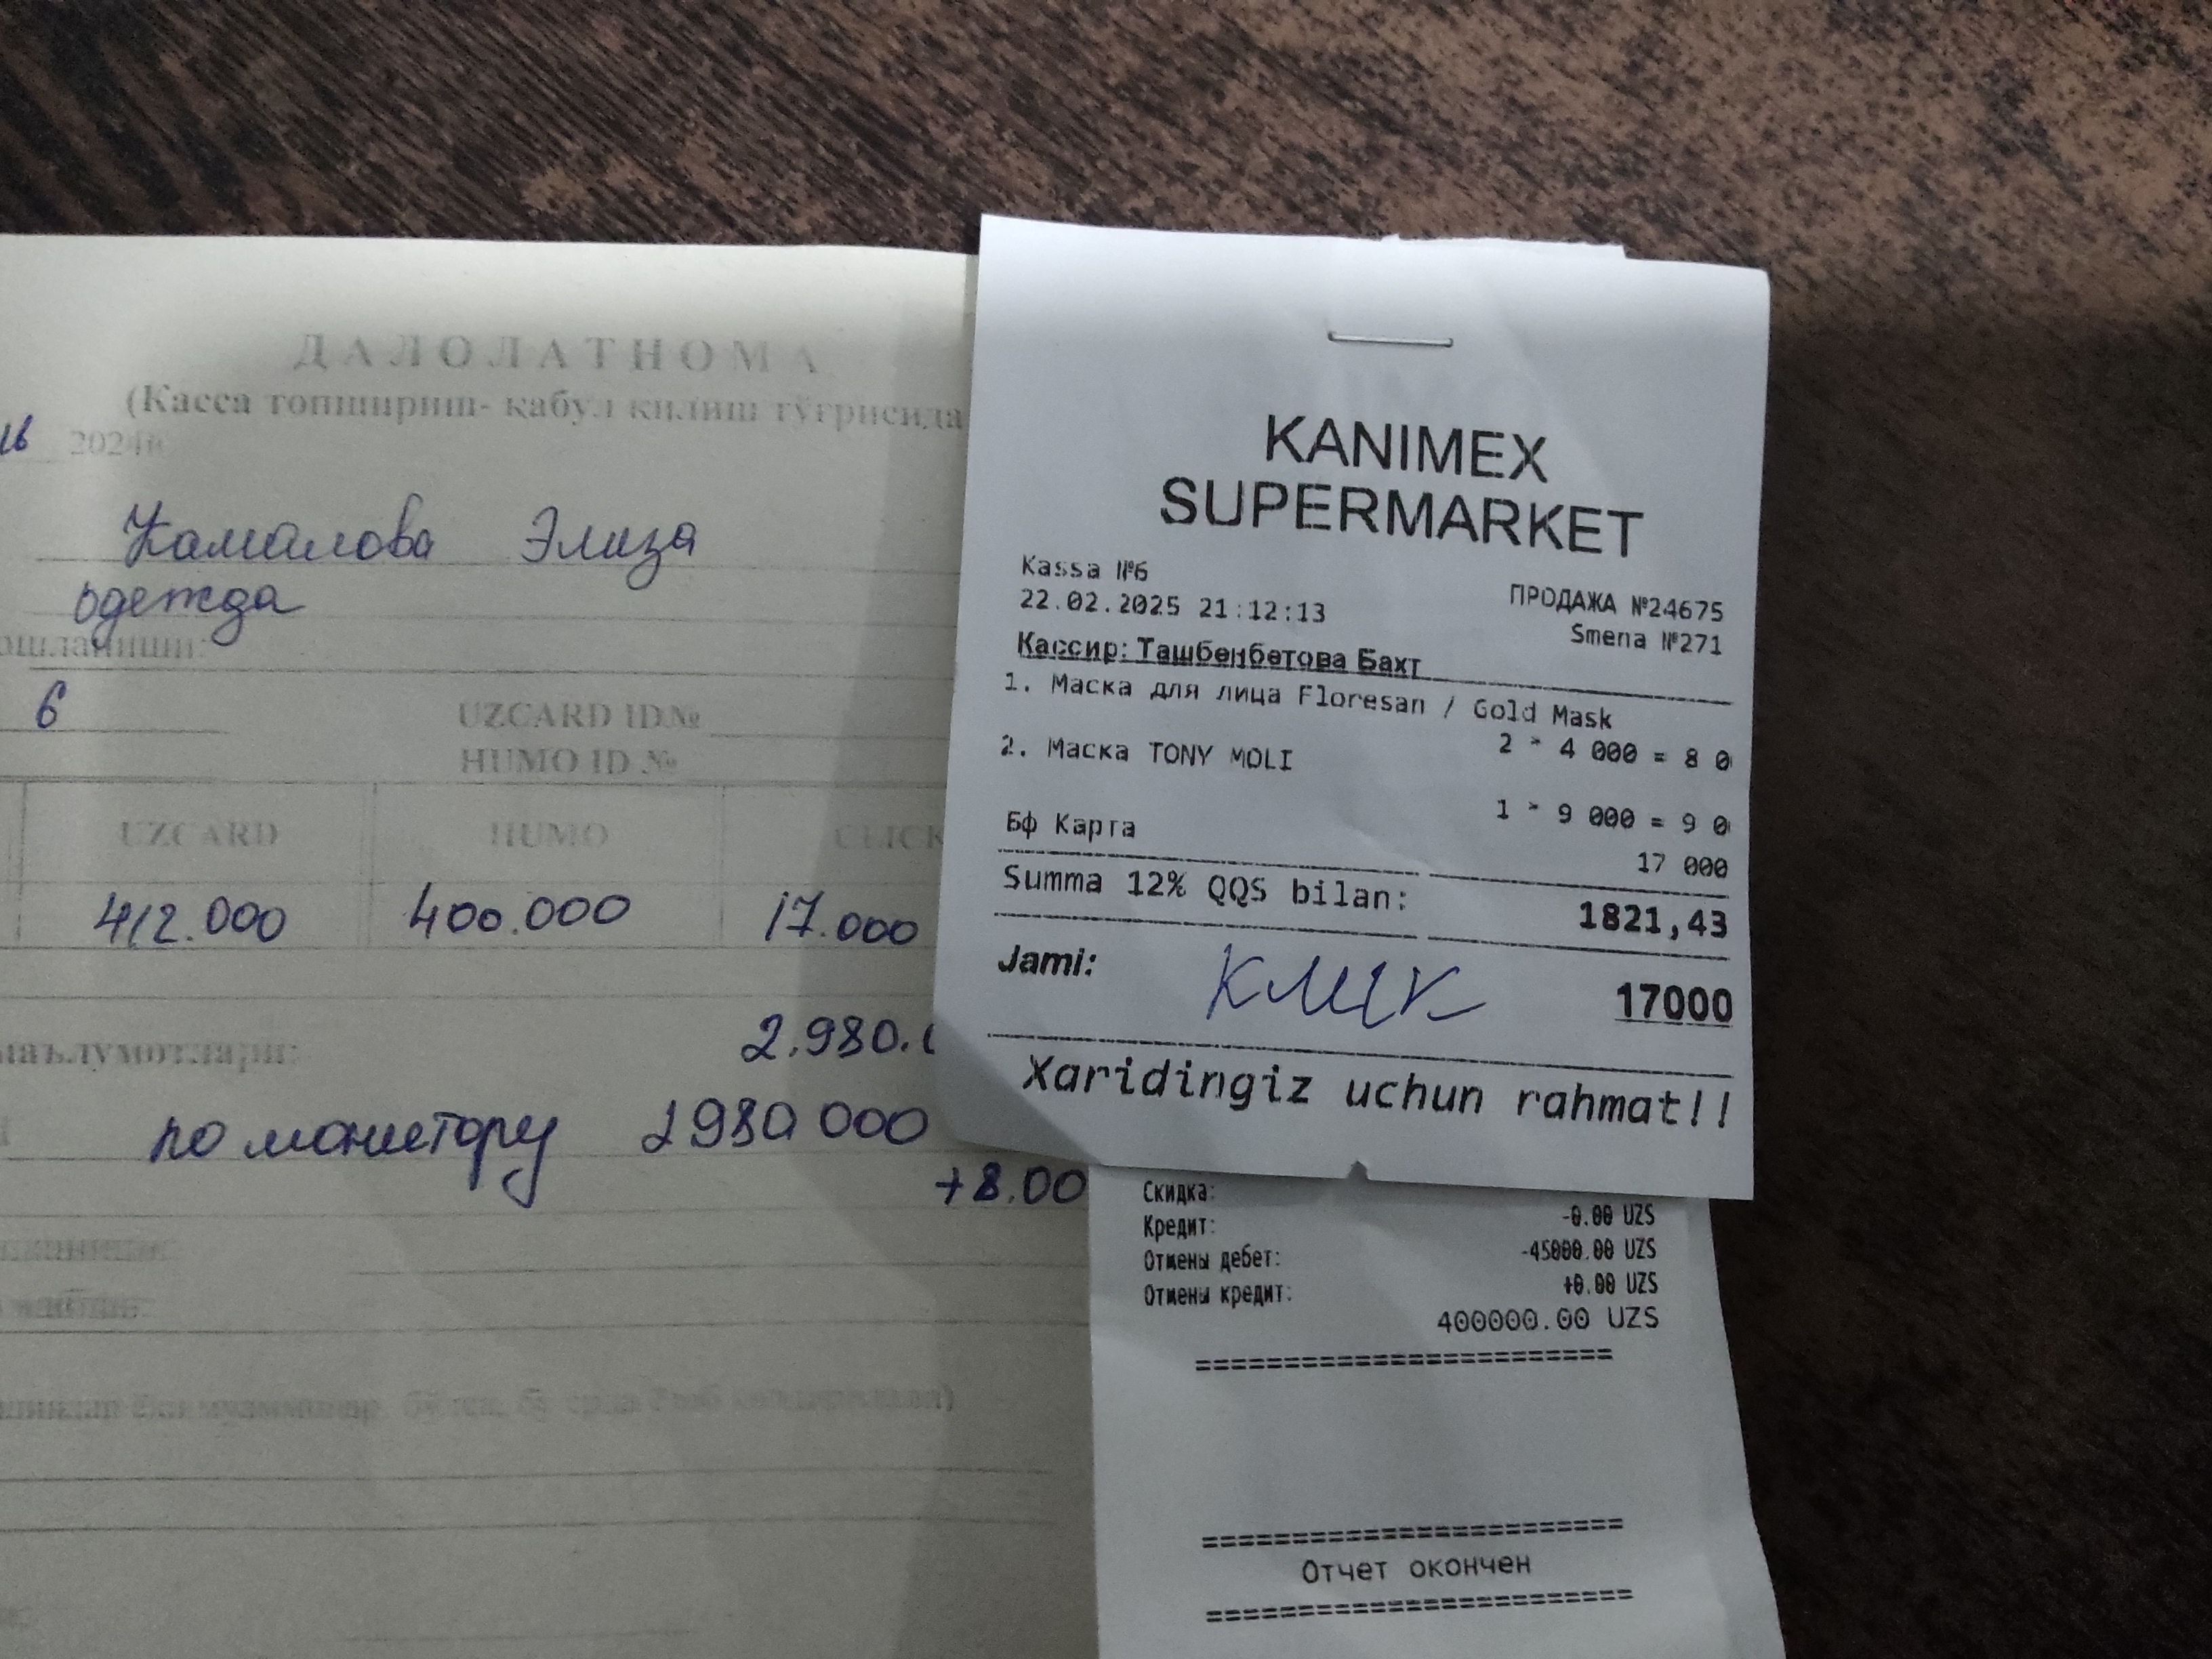 ДАЛОЛАТНОМА
(Касса топшириш- қабул қилиш тўғрисида
2024й
Камалова Элиза
одежда
ошланиши:
6
UZCARD ID№
HUMO ID №
UZCARD HUMO CLICK
412.000 400.000 17.000
2.980.
маълумотлари:
по монитору 2980 000
+8.00
KANIMEX
SUPERMARKET
Kassa №6
ПРОДАЖА №24675
22.02.2025 21:12:13
Smena №271
Кассир: Ташбенбетова Бахт
1. Маска для лица Floresan / Gold Mask
2 * 4 000 = 8 0
2. Маска TONY MOLI
1 * 9 000 = 9 0
Бф Карта
17 000
Summa 12% QQS bilan: 1821,43
Jami: клик 17000
Xaridingiz uchun rahmat!!
Скидка: -0.00 UZS
Кредит: -45000.00 UZS
Отмены дебет: +0.00 UZS
Отмены кредит:
400000.00 UZS
========================
========================
Отчет окончен
========================